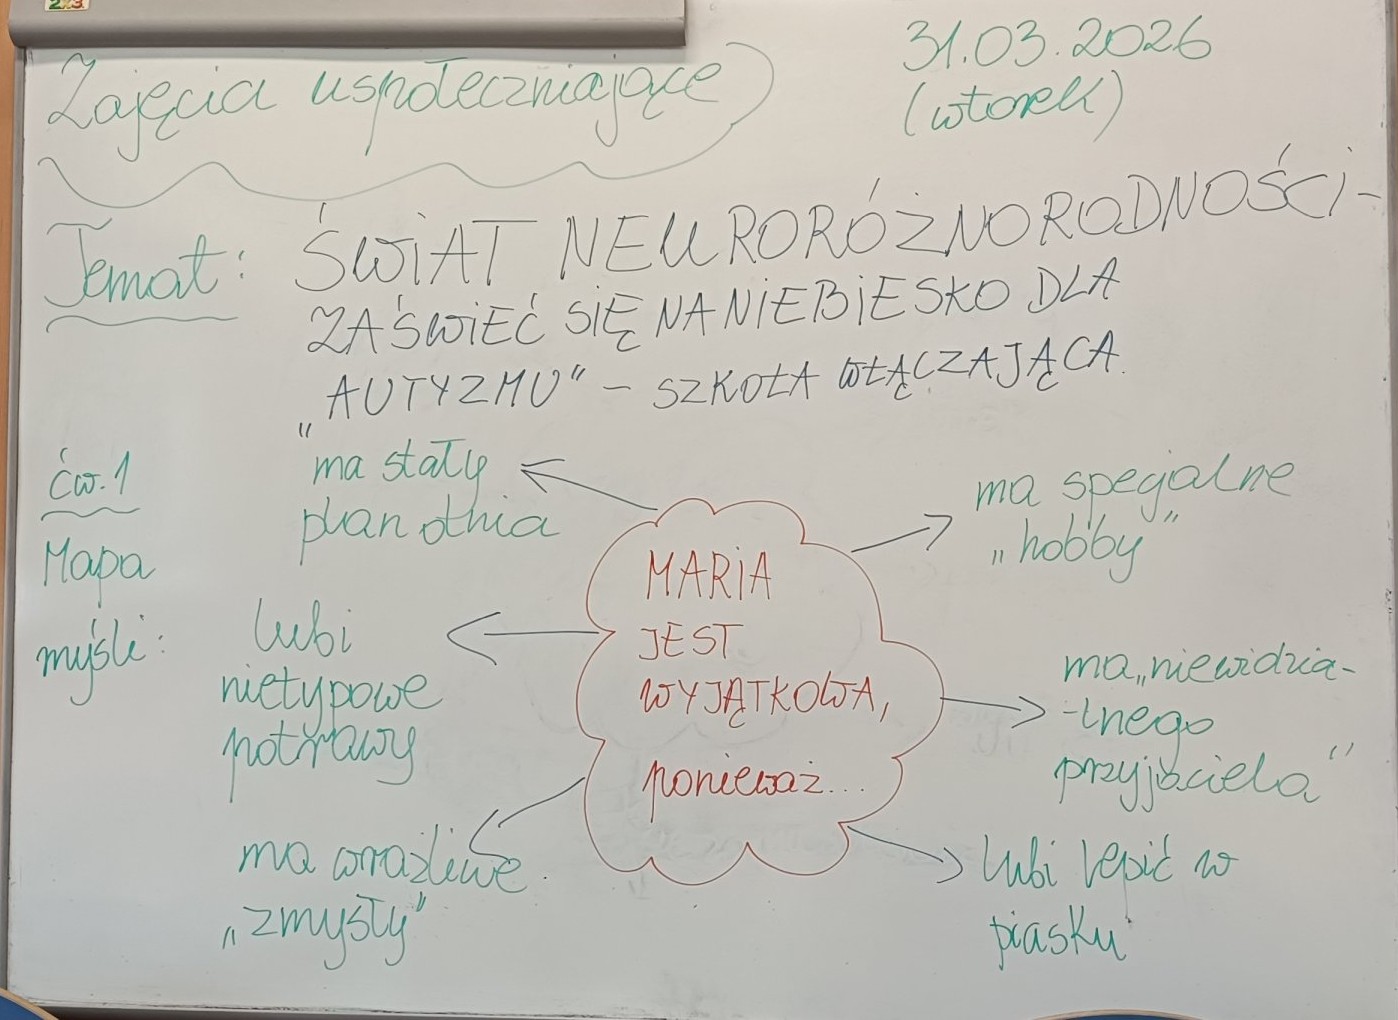 Zajęcia uspołeczniające
31.03.2026
(wtorek)
Temat: ŚWIAT NEURORÓŻNORODNOŚCI -
ZAŚWIEĆ SIĘ NA NIEBIESKO DLA
„AUTYZMU” - SZKOŁA WŁĄCZAJĄCA.
ćw. 1
Mapa
myśli:
ma stały
plan dnia
lubi
nietypowe
potrawy
ma wrażliwe
„zmysły”
MARIA
JEST
WYJĄTKOWA,
ponieważ...
ma specjalne
„hobby”
ma „niewidzia-
-lnego
przyjaciela”
lubi lepić w
piasku